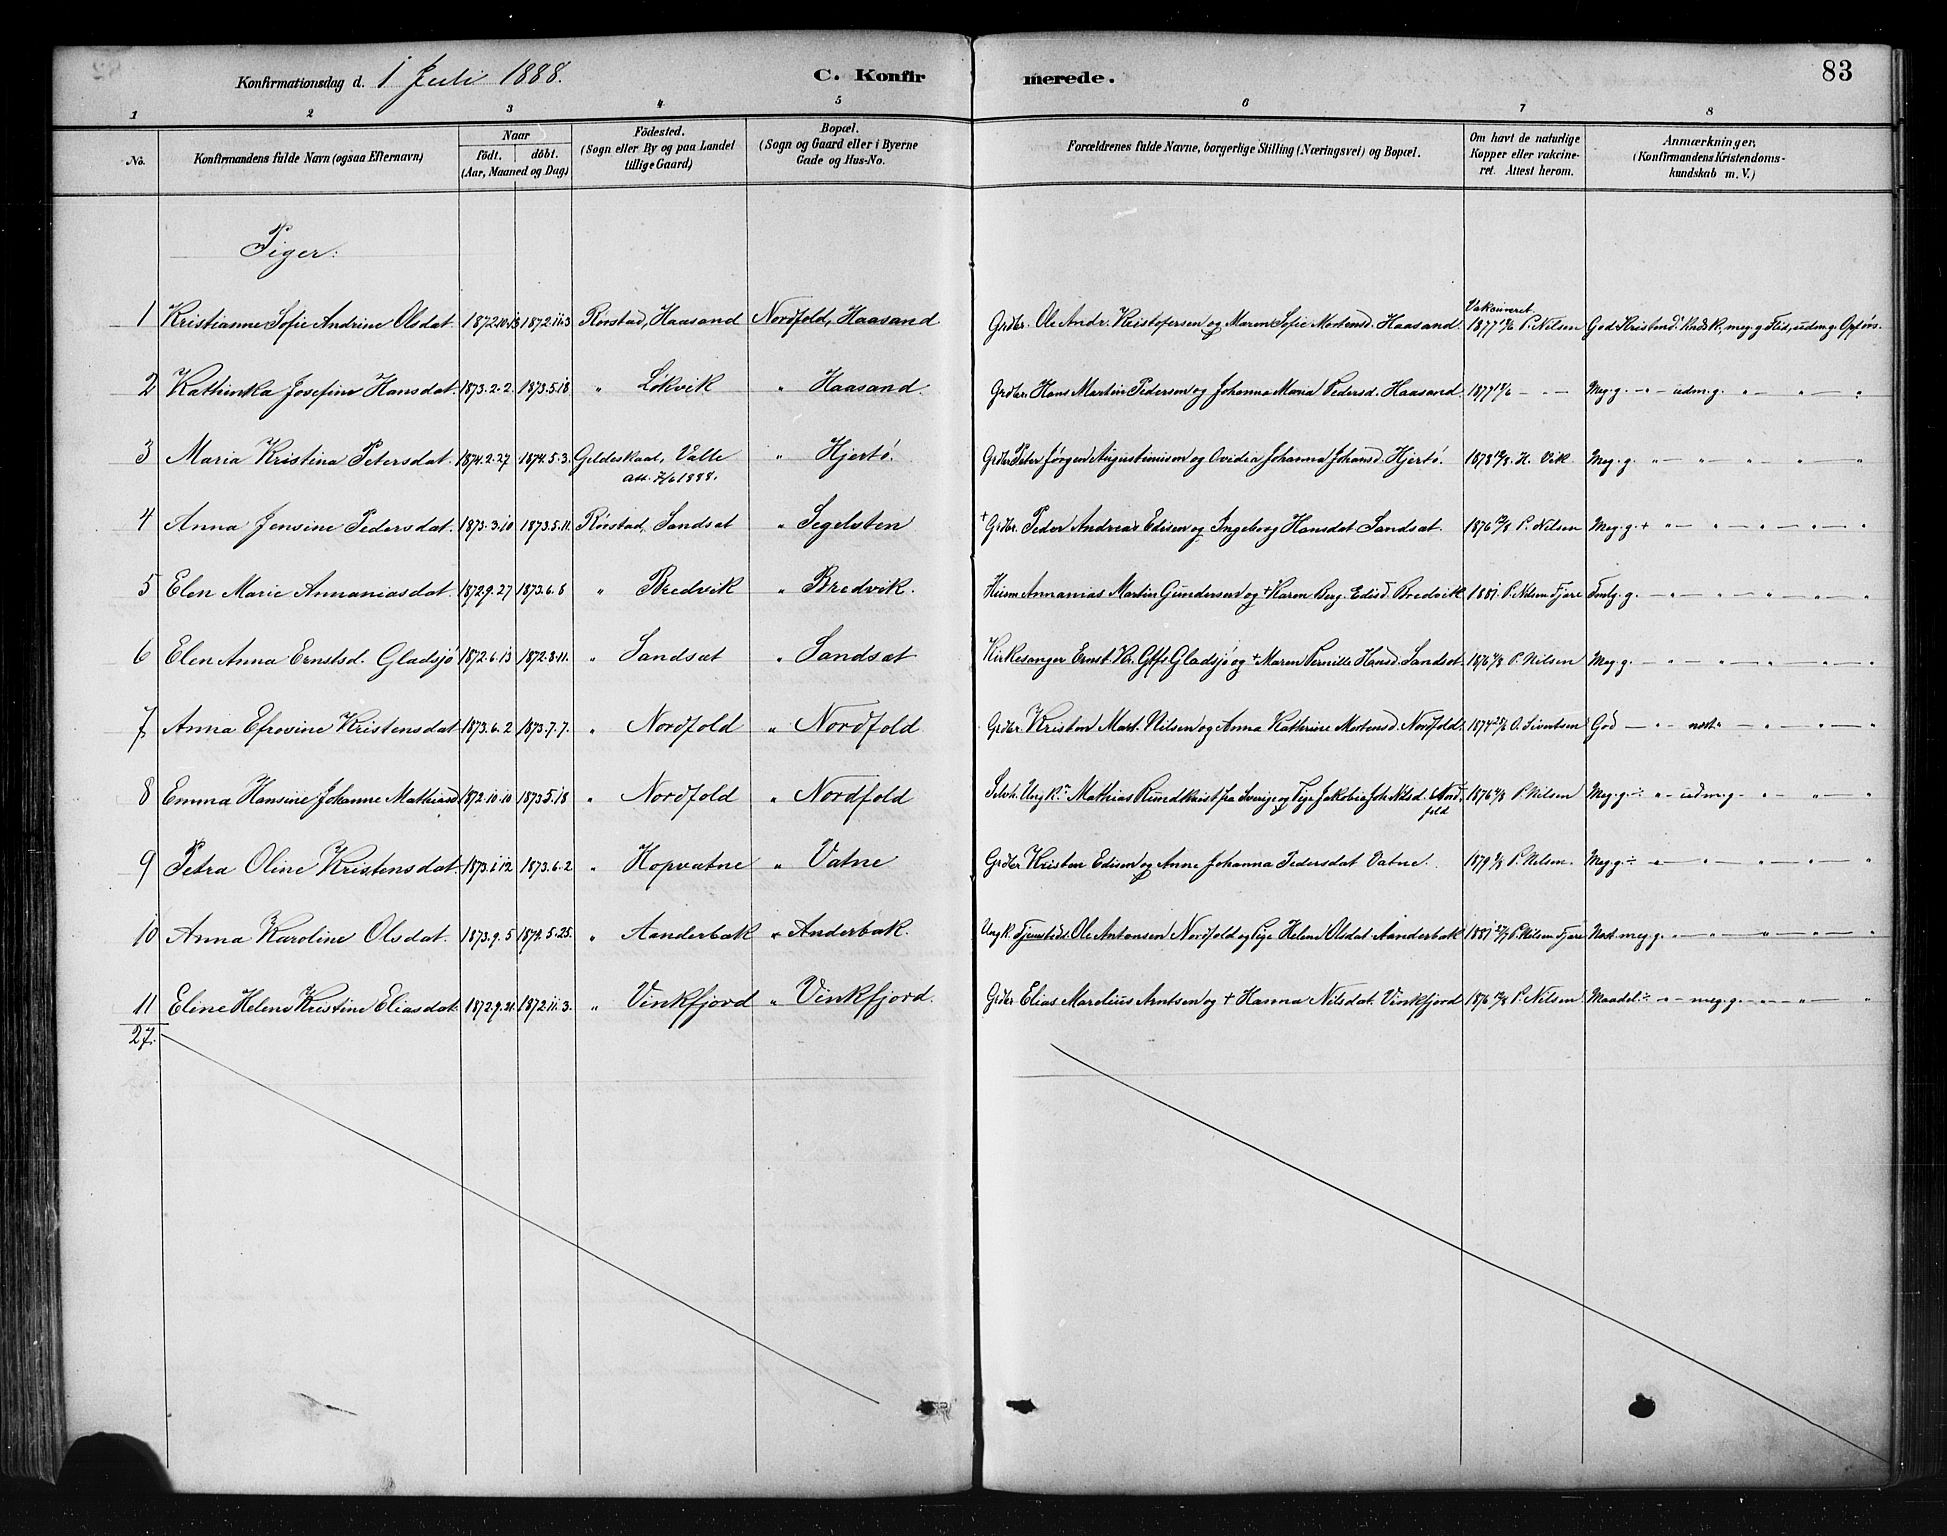 Konfirmationsdag d. 1 Juli 1888. C. Konfirmerede. 83
1 2 3 4 5 6 7 8
No. Konfirmandens fulde Navn (ogsaa Efternavn) Naar födt. döbt. (Aar, Maaned og Dag) Födested. (Sogn eller By og paa Landet tillige Gaard) Bopæl. (Sogn og Gaard eller i Byerne Gade og Hus-No. Forældrenes fulde Navne, borgerlige Stilling (Næringsvei) og Bopæl. Om havt de naturlige Kopper eller vakcineret. Attest herom. Anmærkninger. (Konfirmandens Kristendomskundskab m. V.)
Piger:
1 Kristianne Sofie Andrine Olsdat. 1872.10.13 1872.11.3 Rörstad, Haasand Nordfold, Haasand Grdbr. Ole Andr. Kristofersen og Maren Sofie Mortensd. Haasand. Vakcineret 1877 P. Nilsen God Kristend. Kndsk., meg. g. Flid, udm. g. Opförs.
2 Kathinka Josefine Hansdat. 1873.2.2. 1873.5.18 " Lökvik " Haasand. Grdbr. Hans Martin Pedersen og Johanna Maria Pedersd. Haasand. 1877 — " — Meg. g. — " — udm. g. " — " — "
3 Maria Kristina Petersdat. 1874.2.27 1874.5.3. Gildeskaal, Valle att. 7/6 1888. " Hjertö. Grdbr. Peter Jörgen Augustinusen og Ovidea Johanna Johansd. Hjertö. 1878 H. Vik. Meg. g. " — " — " — " — "
4 Anna Jensine Pedersdat. 1873.3.10 1873.5.11. Rörstad, Sandsat " Segelsten + Grdbr. Peder Andreas Edisen og Ingeborg Hansdat Sandsat. 1876 P. Nilsen Meg. g. + " — " — " — " — "
5 Elen Marie Annaniasdat. 1872.9.27 1873.6.8 " Bredvik " Bredvik. Annanias Martin Gundersen og + Karen Berg. Edisd. Bredvik. 1881. P. Nilsen Fjære g. — " — " — " — " — "
6 Elen Anna Ernstsd. Gladsjö 1872.6.13 1872.8.11. " Sandsat " Sandsat. Kirkesanger Ernst Kr. Gladsjö og + Maren Pernille Hansd. Sandsat. 1876 P. Nilsen Meg. g. — " — " — " — " — "
7 Anna Efrosine Kristensdat. 1873.6.2 1873.7.7. " Nordfold " Nordfold. Grdbr. Kristen Mart. Nilsen og Anna Kathrine Mortensd. Nordfold. 1874 O. Sivertsen God — " — nost. " — " — " — "
8 Emma Hansine Johanne Mathiasd. 1872.10.10 1873.5.18 " Nordfold " Nordfold Ungk. Mathias fra Sverige og Pige Jakobia Joh. Nilsd. Nordfold 1876 P. Nilsen. Meg. g. ÷ " — udm. g. — " — " — "
9 Petra Oline Kristensdat. 1873.1.12 1873.6.2 " Hopvatne " Vatne Grdbr. Kristen Edisen og Anne Johanna Pedersdat Vatne. P. Nilsen. Meg. g. ÷ " — " — " — " — "
10 Anna Karoline Olsdat. 1873.9.5 1879.5.25. " Aanderbak " Anderbak. Ungk. Tjenestedr. Ole Antonsen Nordfold og Pige Helene Olsdat Aanderbak 1881 P. Nilsen Fjære Nost. meg. g. " — " — " — " — "
11 Eline Helene Kristine Eliasdat. 1872.9.21. 1872.11.3. " Vinkfjord " Vinkfjord. Grdbr. Elias Marelius Arntsen og + Hanna Nilsdat. Vinkfjord 1876 P. Nilsen Maadel. ÷ " — meg. g. — " — " — "
27.